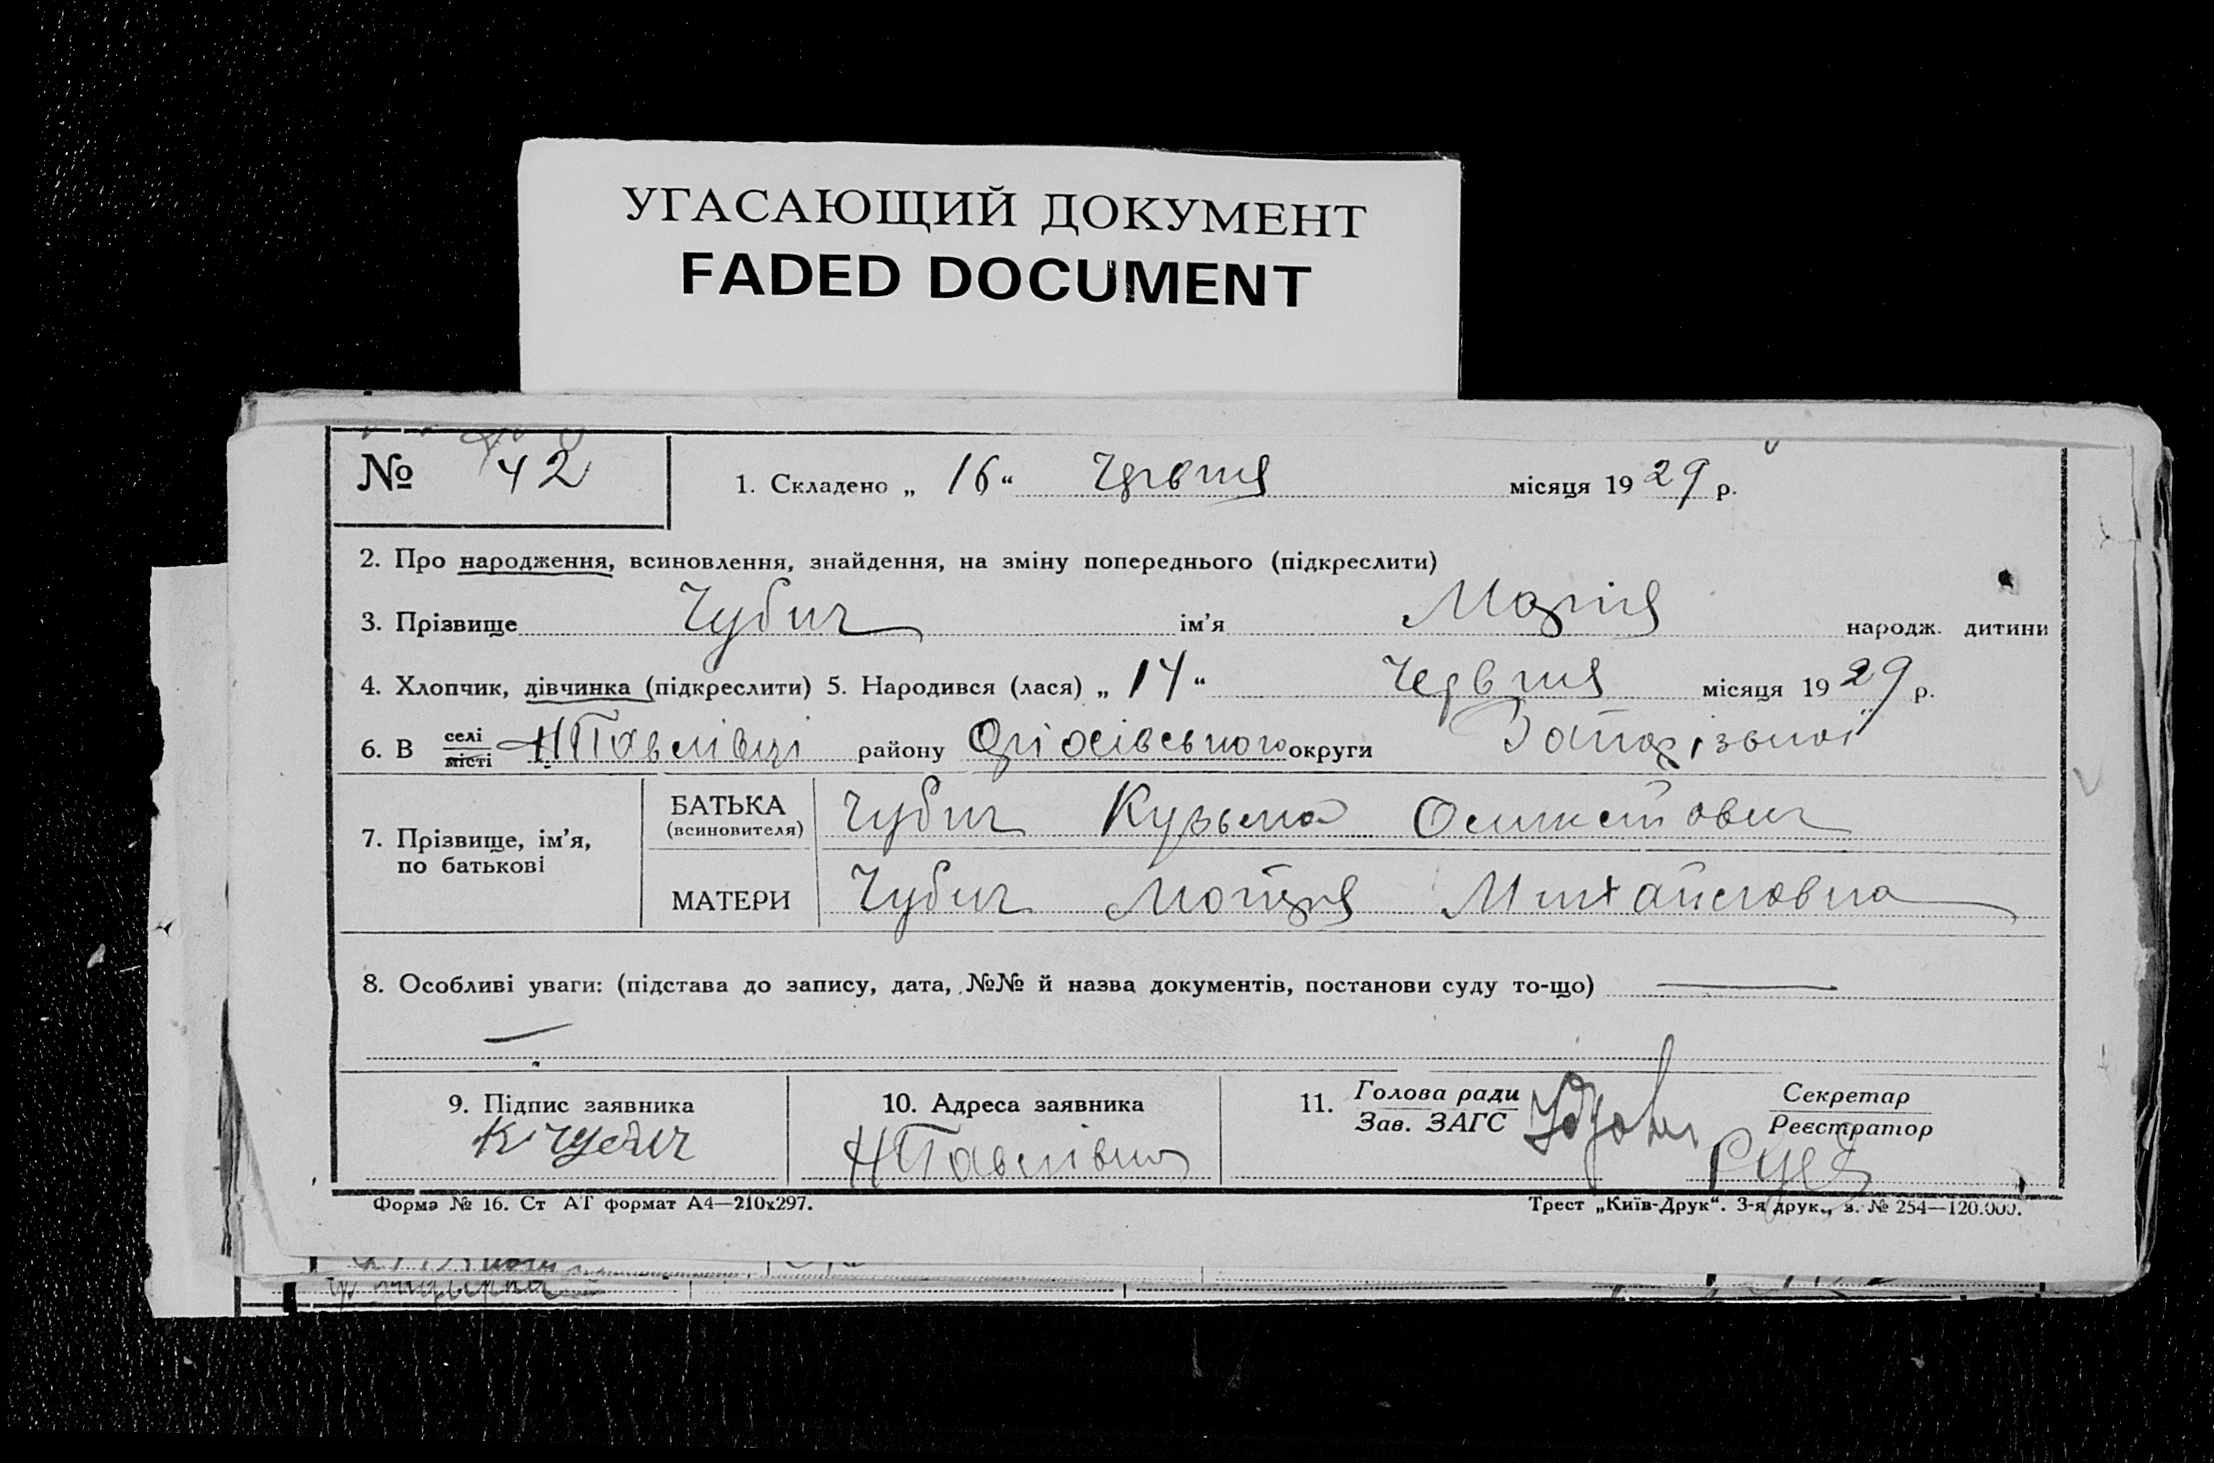 УГАСАЮЩИЙ ДОКУМЕНТ
FADED DOCUMENT
№ 42
1. Складено „ 16 “ Червня місяця 19 29 р.
2. Про народження, всиновлення, знайдення, на зміну попереднього (підкреслити)
3. Прізвище Чубич ім’я Марія народж. дитини
4. Хлопчик, дівчинка (підкреслити) 5. Народився (лася) „ 14 “ Червня місяця 19 29 р.
6. В селі місті Н Павлівці району округи Запорізької
7. Прізвище, ім’я, по батькові
БАТЬКА (всиновителя) Чубич Кузьма
МАТЕРИ Чубич Мотря Михайловна
8. Особливі уваги: (підстава до запису, дата, №№ й назва документів, постанови суду то-що)
9. Підпис заявника
К Чубич
10. Адреса заявника
Н Павлівка
11. Голова ради
Зав. ЗАГС
Секретар
Реєстратор
Форма № 16. Ст АТ формат А4—210х297.
Трест „Київ-Друк“. 3-я друк., з. № 254—120.000.